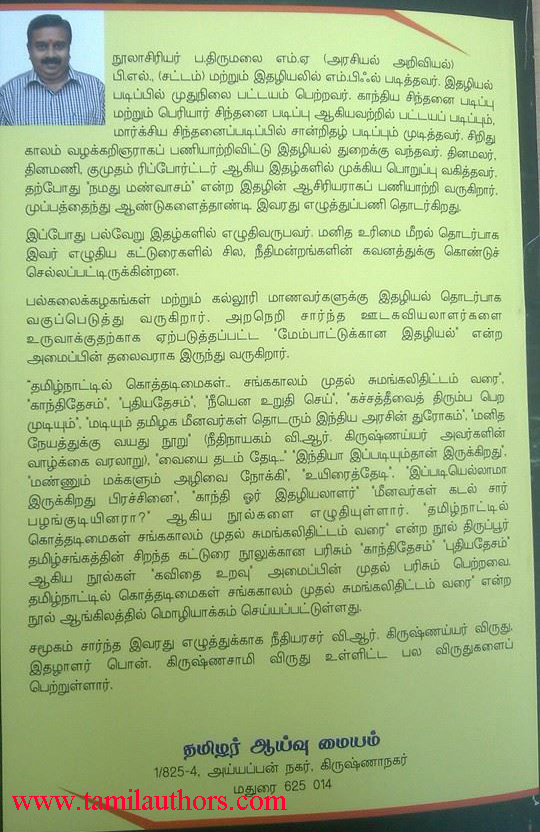 நூலாசிரியர் ப.திருமலை எம்.ஏ (அரசியல் அறிவியல்)
பி.எல்., (சட்டம்) மற்றும் இதழியலில் எம்.பிஃல் படித்தவர். இதழியல்
படிப்பில் முதுநிலை பட்டயம் பெற்றவர். காந்திய சிந்தனை படிப்பு
மற்றும் பெரியார் சிந்தனை படிப்பு ஆகியவற்றில் பட்டயப் படிப்பும்,
மார்க்சிய சிந்தனைப்படிப்பில் சான்றிதழ் படிப்பும் முடித்தவர். சிறிது
காலம் வழக்கறிஞராகப் பணியாற்றிவிட்டு இதழியல் துறைக்கு வந்தவர். தினமலர்,
தினமணி, குமுதம் ரிப்போர்ட்டர் ஆகிய இதழ்களில் முக்கிய பொறுப்பு வகித்தவர்.
தற்போது 'நமது மண்வாசம்" என்ற இதழின் ஆசிரியராகப் பணியாற்றி வருகிறார்.
முப்பத்தைந்து ஆண்டுகளைத்தாண்டி இவரது எழுத்துப்பணி தொடர்கிறது.
இப்போது பல்வேறு இதழ்களில் எழுதிவருபவர். மனித உரிமை மீறல் தொடர்பாக
இவர் எழுதிய கட்டுரைகளில் சில, நீதிமன்றங்களின் கவனத்துக்கு கொண்டுச்
செல்லப்பட்டிருக்கின்றன.
பல்கலைக்கழகங்கள் மற்றும் கல்லூரி மாணவர்களுக்கு இதழியல் தொடர்பாக
வகுப்பெடுத்து வருகிறார். அறநெறி சார்ந்த ஊடகவியலாளர்களை
உருவாக்குதற்காக ஏற்படுத்தப்பட்ட "மேம்பாட்டுக்கான இதழியல்" என்ற
அமைப்பின் தலைவராக இருந்து வருகிறார்.
"தமிழ்நாட்டில் கொத்தடிமைகள்.. சங்ககாலம் முதல் சுமங்கலிதிட்டம் வரை",
"காந்திதேசம்", "புதியதேசம்", "நீயென உறுதி செய்", "கச்சத்தீவைத் திரும்ப பெற
முடியும்", "மடியும் தமிழக மீனவர்கள் தொடரும் இந்திய அரசின் துரோகம்", "மனித
நேயத்துக்கு வயது நூறு" (நீதிநாயகம் வி.ஆர். கிருஷ்ணய்யர் அவர்களின்
வாழ்க்கை வரலாறு), "வைகை தடம் தேடி.." "இந்தியா இப்படியும்தான் இருக்கிறது",
"மண்ணும் மக்களும் அழிவை நோக்கி", "உயிரைத்தேடி", "இப்படியெல்லாமா
இருக்கிறது பிரச்சினை", "காந்தி ஓர் இதழியலாளர்" "மீனவர்கள் கடல் சார்
பழங்குடியினரா?" ஆகிய நூல்களை எழுதியுள்ளார். "தமிழ்நாட்டில்
கொத்தடிமைகள் சங்ககாலம் முதல் சுமங்கலிதிட்டம் வரை" என்ற நூல் திருப்பூர்
தமிழ்சங்கத்தின் சிறந்த கட்டுரை நூலுக்கான பரிசும் "காந்திதேசம்" "புதியதேசம்"
ஆகிய நூல்கள் "கவிதை உறவு" அமைப்பின் முதல் பரிசும் பெற்றவை.
தமிழ்நாட்டில் கொத்தடிமைகள் சங்ககாலம் முதல் சுமங்கலிதிட்டம் வரை" என்ற
நூல் ஆங்கிலத்தில் மொழியாக்கம் செய்யப்பட்டுள்ளது.
சமூகம் சார்ந்த இவரது எழுத்துக்காக நீதியரசர் வி.ஆர். கிருஷ்ணய்யர் விருது,
இதழாளர் பொன். கிருஷ்ணசாமி விருது உள்ளிட்ட பல விருதுகளைப்
பெற்றுள்ளார்.
தமிழர் ஆய்வு மையம்
1/825-4, அய்யப்பன் நகர், கிருஷ்ணாநகர்
மதுரை 625 014
www.tamilauthors.com